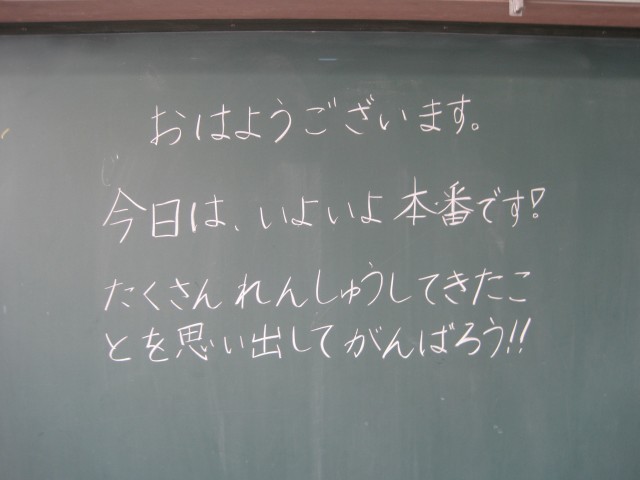 おはようございます。
今日は、いよいよ本番です!
たくさんれんしゅうしてきたこ
とを思い出してがんばろう!!